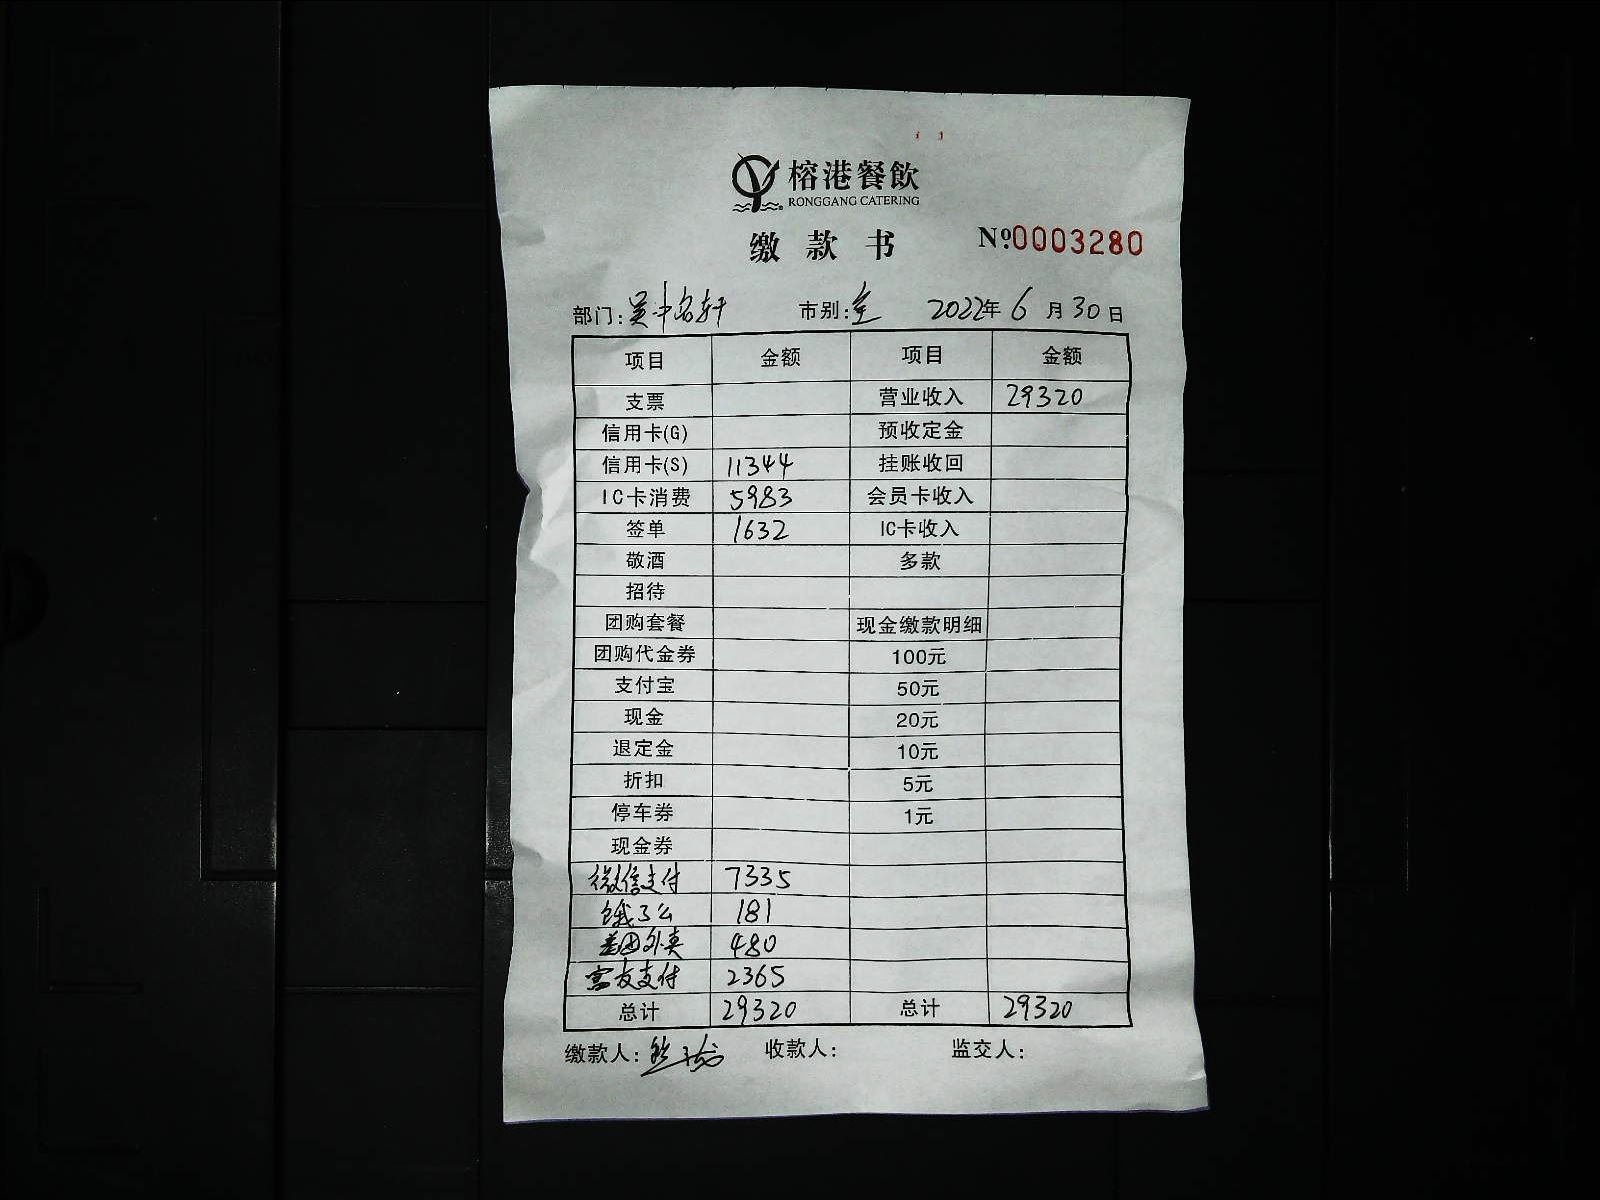 榕港餐飲
RONGGANG CATERING
缴款书 Nº:0003280
部门: 吴中名轩 市别: 全 2022年6月30日
项目 金额 项目 金额
支票 营业收入 29320
信用卡(G) 预收定金
信用卡(S) 11344 挂账收回
IC卡消费 5983 会员卡收入
签单 1632 IC卡收入
敬酒 多款
招待
团购套餐 现金缴款明细
团购代金券 100元
支付宝 50元
现金 20元
退定金 10元
折扣 5元
停车券 1元
现金券
微信支付 7335
饿了么 181
美团外卖 480
支付 2365
总计 29320 总计 29320
缴款人: 收款人: 监交人: